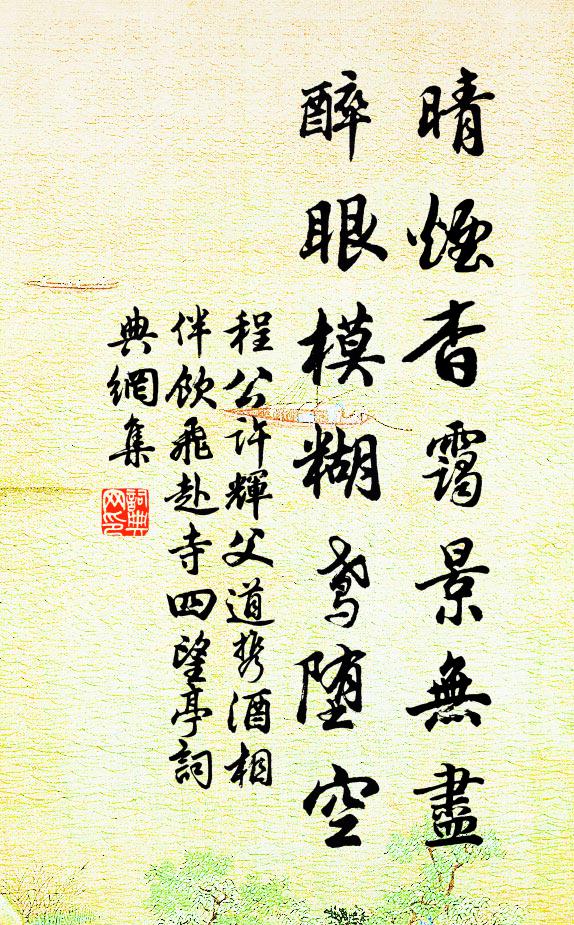 晴煙杳靄景無盡
醉眼模糊鳶墮空
程公許輝父道攜酒相
伴飲飛赴寺四望亭詞
典網集
詞典
网印